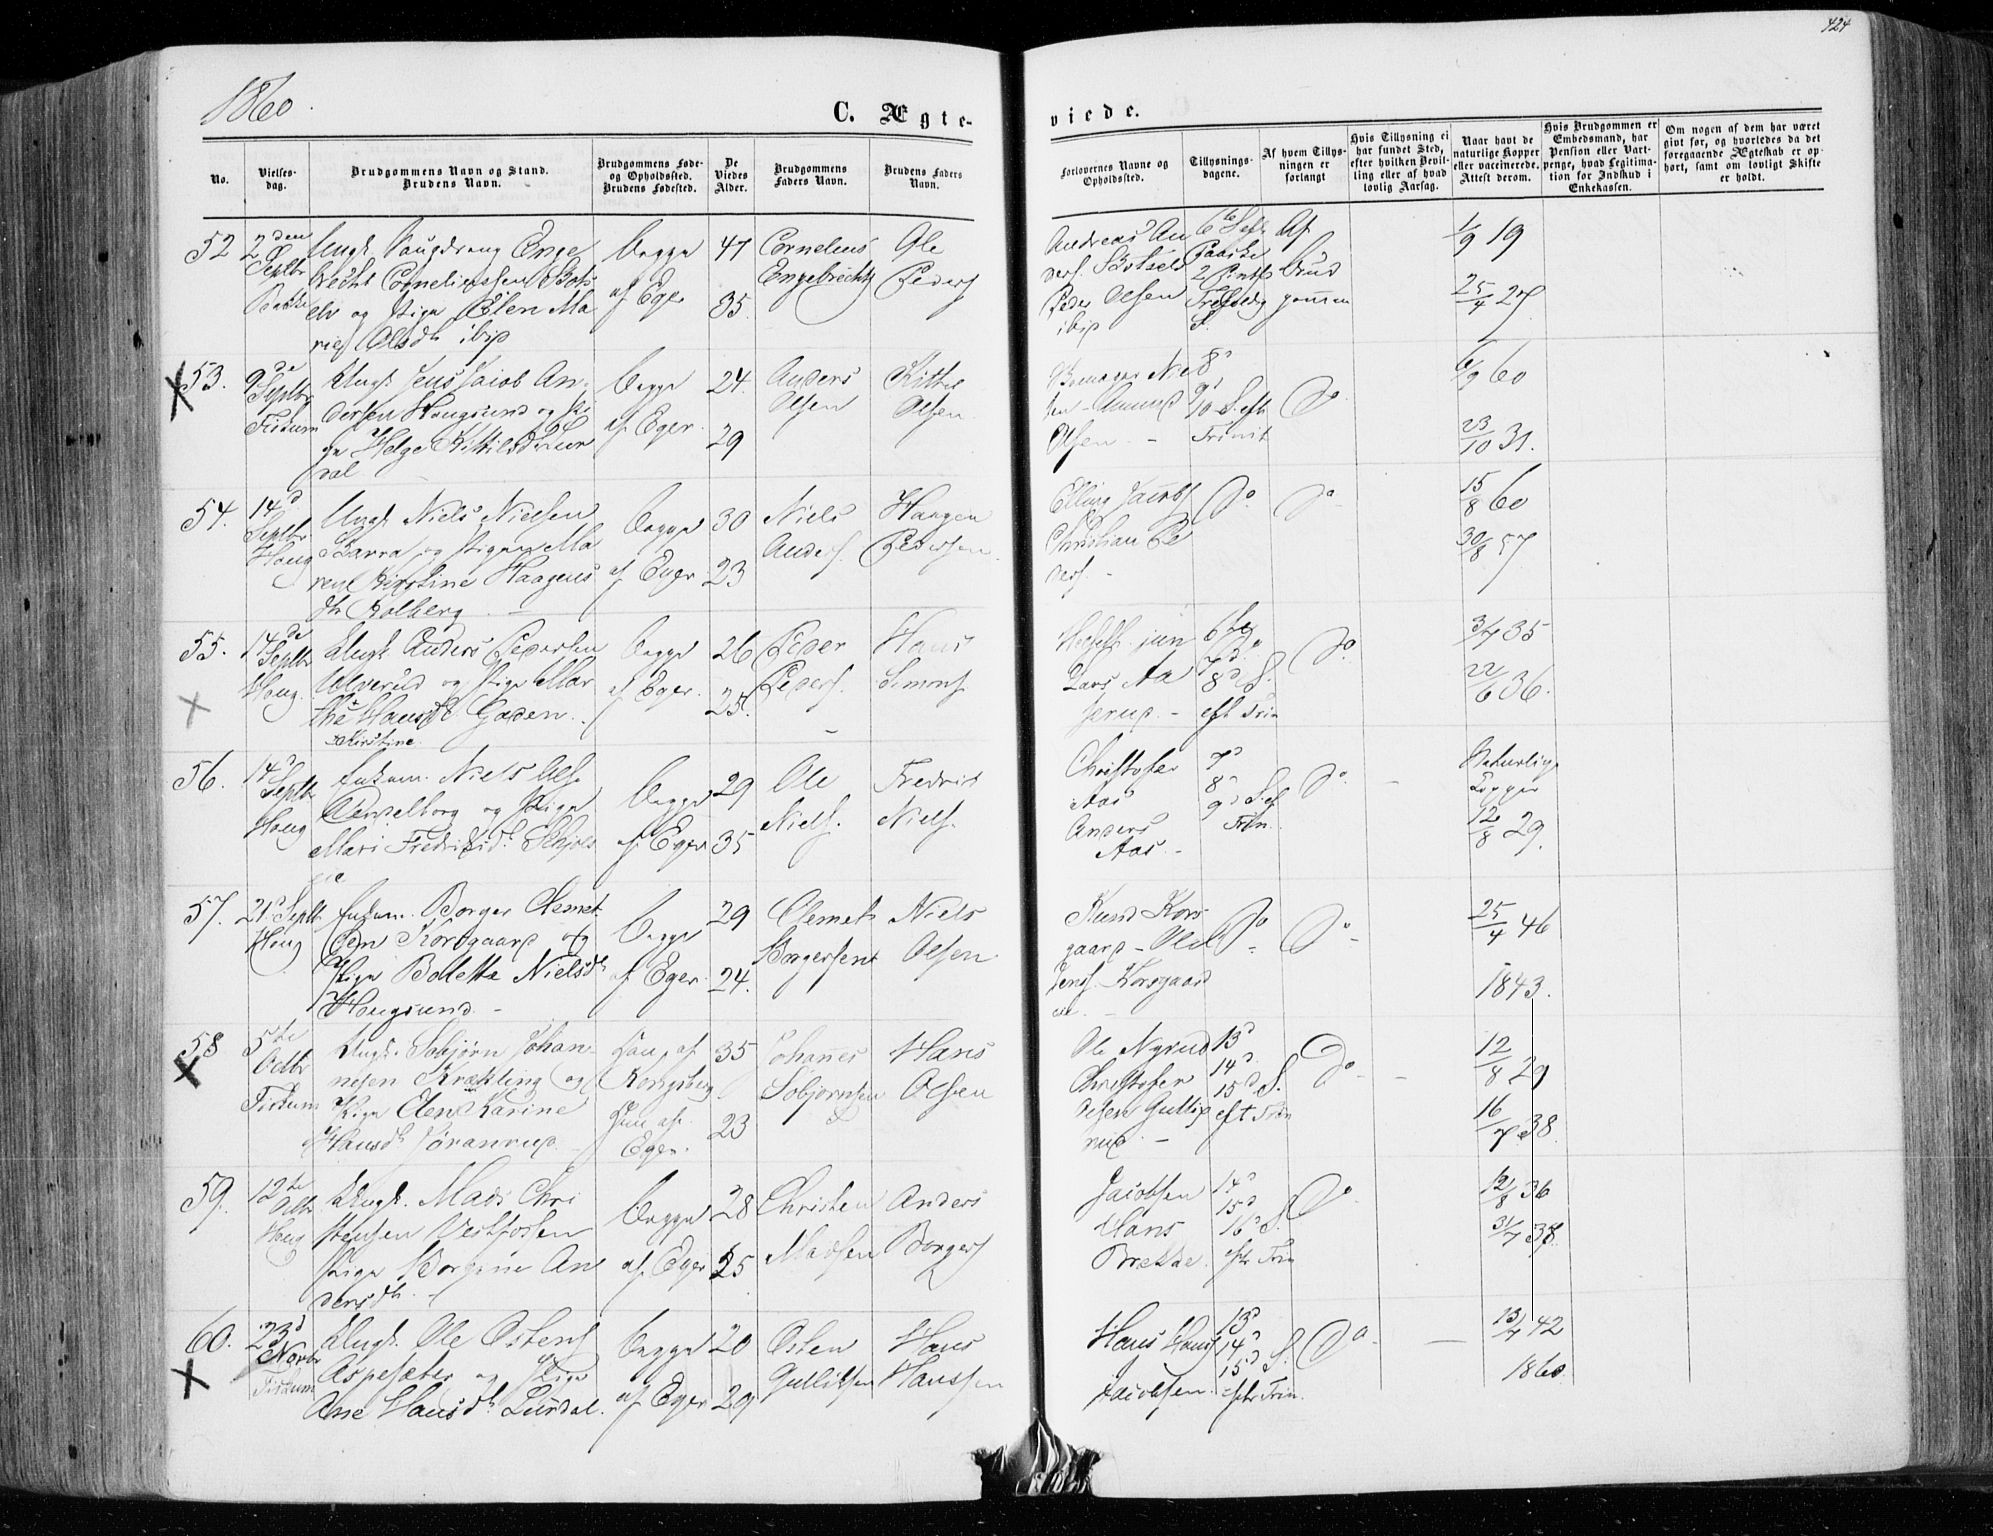 424
1860.
C. Ægte-
viede.
No.
Vielses-
dag.
Brudgommens Navn og Stand.
Brudens Navn.
Brudgommens Føde-
og Opholdssted.
Brudens Fødested.
De
Viedes
Alder.
Brudgommens
Faders Navn.
Brudens Faders
Navn.
Forlovernes Navne og
Opholdssted.
Tillysnings-
dagene.
Af hvem Tillys-
ningen er
forlangt
Hvis Tillysning ei
har fundet Sted,
efter hvilken Bevil-
ling eller af hvad
lovlig Aarsag.
Naar havt de
naturlige Kopper
eller vaccinerede.
Attest derom.
Hvis Brudgommen er
Embedsmand, har
Pension eller Vart-
penge, hvad Legitima-
tion for Indskud i
Enkekassen.
Om nogen af dem har været
givt før, og hvorledes da det
foregaaende Ægteskab er op-
hørt, samt om lovligt Skifte
er holdt.
52
2den
Septbr
Bakke
Ungk. Enge
brecht Corneliussen
og Pige Elen Ma
rie Olsdtr ibid
begge
af Eger
47
35.
Cornelius
Engebrechts
Ole
Peders
Andreas An
ders.
Peder Olsen
ibid
6te
Af
Brud
gommen
1/9 19
25/4 27
53.
9de
Septbr
Fiskum
Ungk. Jens Jacob An-
dersen Hougsund og Pi
ge Helge Kittilsdtr
dal
begge
af Eger.
24.
29
Anders
Olsen
Kittil
Olsen
Niel
sen - Amund
Olsen. -
8d
9d
10 S. eft
Trinit
Do
6/9 60
23/10 31.
54.
14d
Septbr
Houg
Ungk. Niels Nielsen
Darra og Pigen Ma
ren Kirstine Haagens
dtr Kolberg. -
begge
af Eger
30
23
Niels
Anders.
Haagen
Pedersen.
Elling Jacobs
Christian Pe
ders. -
Do
Do
15/8 60
30/8 57
55.
14de
Septbr
Houg.
Ungk. Anders Pedersen
Ulverud og Pige Mar
the Hansdtr Gaden.
Kirstine.
begge
af Eger.
26
25.
Peder
Peders.
Hans
Simons.
jun
Lars Aa
serud. -
6te
7d
8d S.
eft Trin
Do.
3/7 35
22/6 36.
56.
14d
Septbr
Houg
Enkem. Niels Ols.
og Pige
Mari Fredriksdt.
begge
af Eger
29
35
Ole
Niels.
Fredrik
Niels.
Christofer
Aas
Anders
Aas. -
7d
8d
9d S. ef
Trin.
Do.
Naturlige
Kopper
12/8 29.
57.
21d Septbr
Houg
Enkem. Borger Clemet
sen Korsgaard og
Pige Bolletta Nielsdt
Hougsund. -
begge
af Eger.
29
24.
Clemet
Borgersen
Niels
Olsen
Knud Kors-
gaard - Ole
Jens. Korsgaard
Do
Do
25/4 46
1843.
58
5te
Octbr
Fiskum
Ungk. Sobjørn Johan-
nesen Krækling og
Pige Elen Karine
Hansdt. Jøranrud.
Han af
Kongsberg
Hun af
Eger.
35
23
Johannes
Sobjørnsen
Hans
Olsen
Ole Nyrud
Christofer
Olsen Gullig
rud. -
13d
14d.
15d S.
eft Trin
Do
12/8 29
16/7 38
59.
12te
Octbr
Houg
Ungk. Mads Chri
stensen Vestfossen
Pige Borgine An
dersdtr. -
begge
af Eger
28
25
Christen
Madsen
Anders
Borgers
Jacobsen
Hans
Brekke
14d
15d
16d S.
eft Trin
Do
12/8 36
31/7 38
60.
23d
Novbr
Fiskum
Ungk. Ole Østens
Aspesæter og Pige
Ane Hansdt. Lurdal.
begge
af Eger
20
29
Østen
Gulliksen
Hans
Hanssen
Hans Hans
Jacobsen.
13d
14d
15d S.
eft Trin.
Do
13/7 42
1860